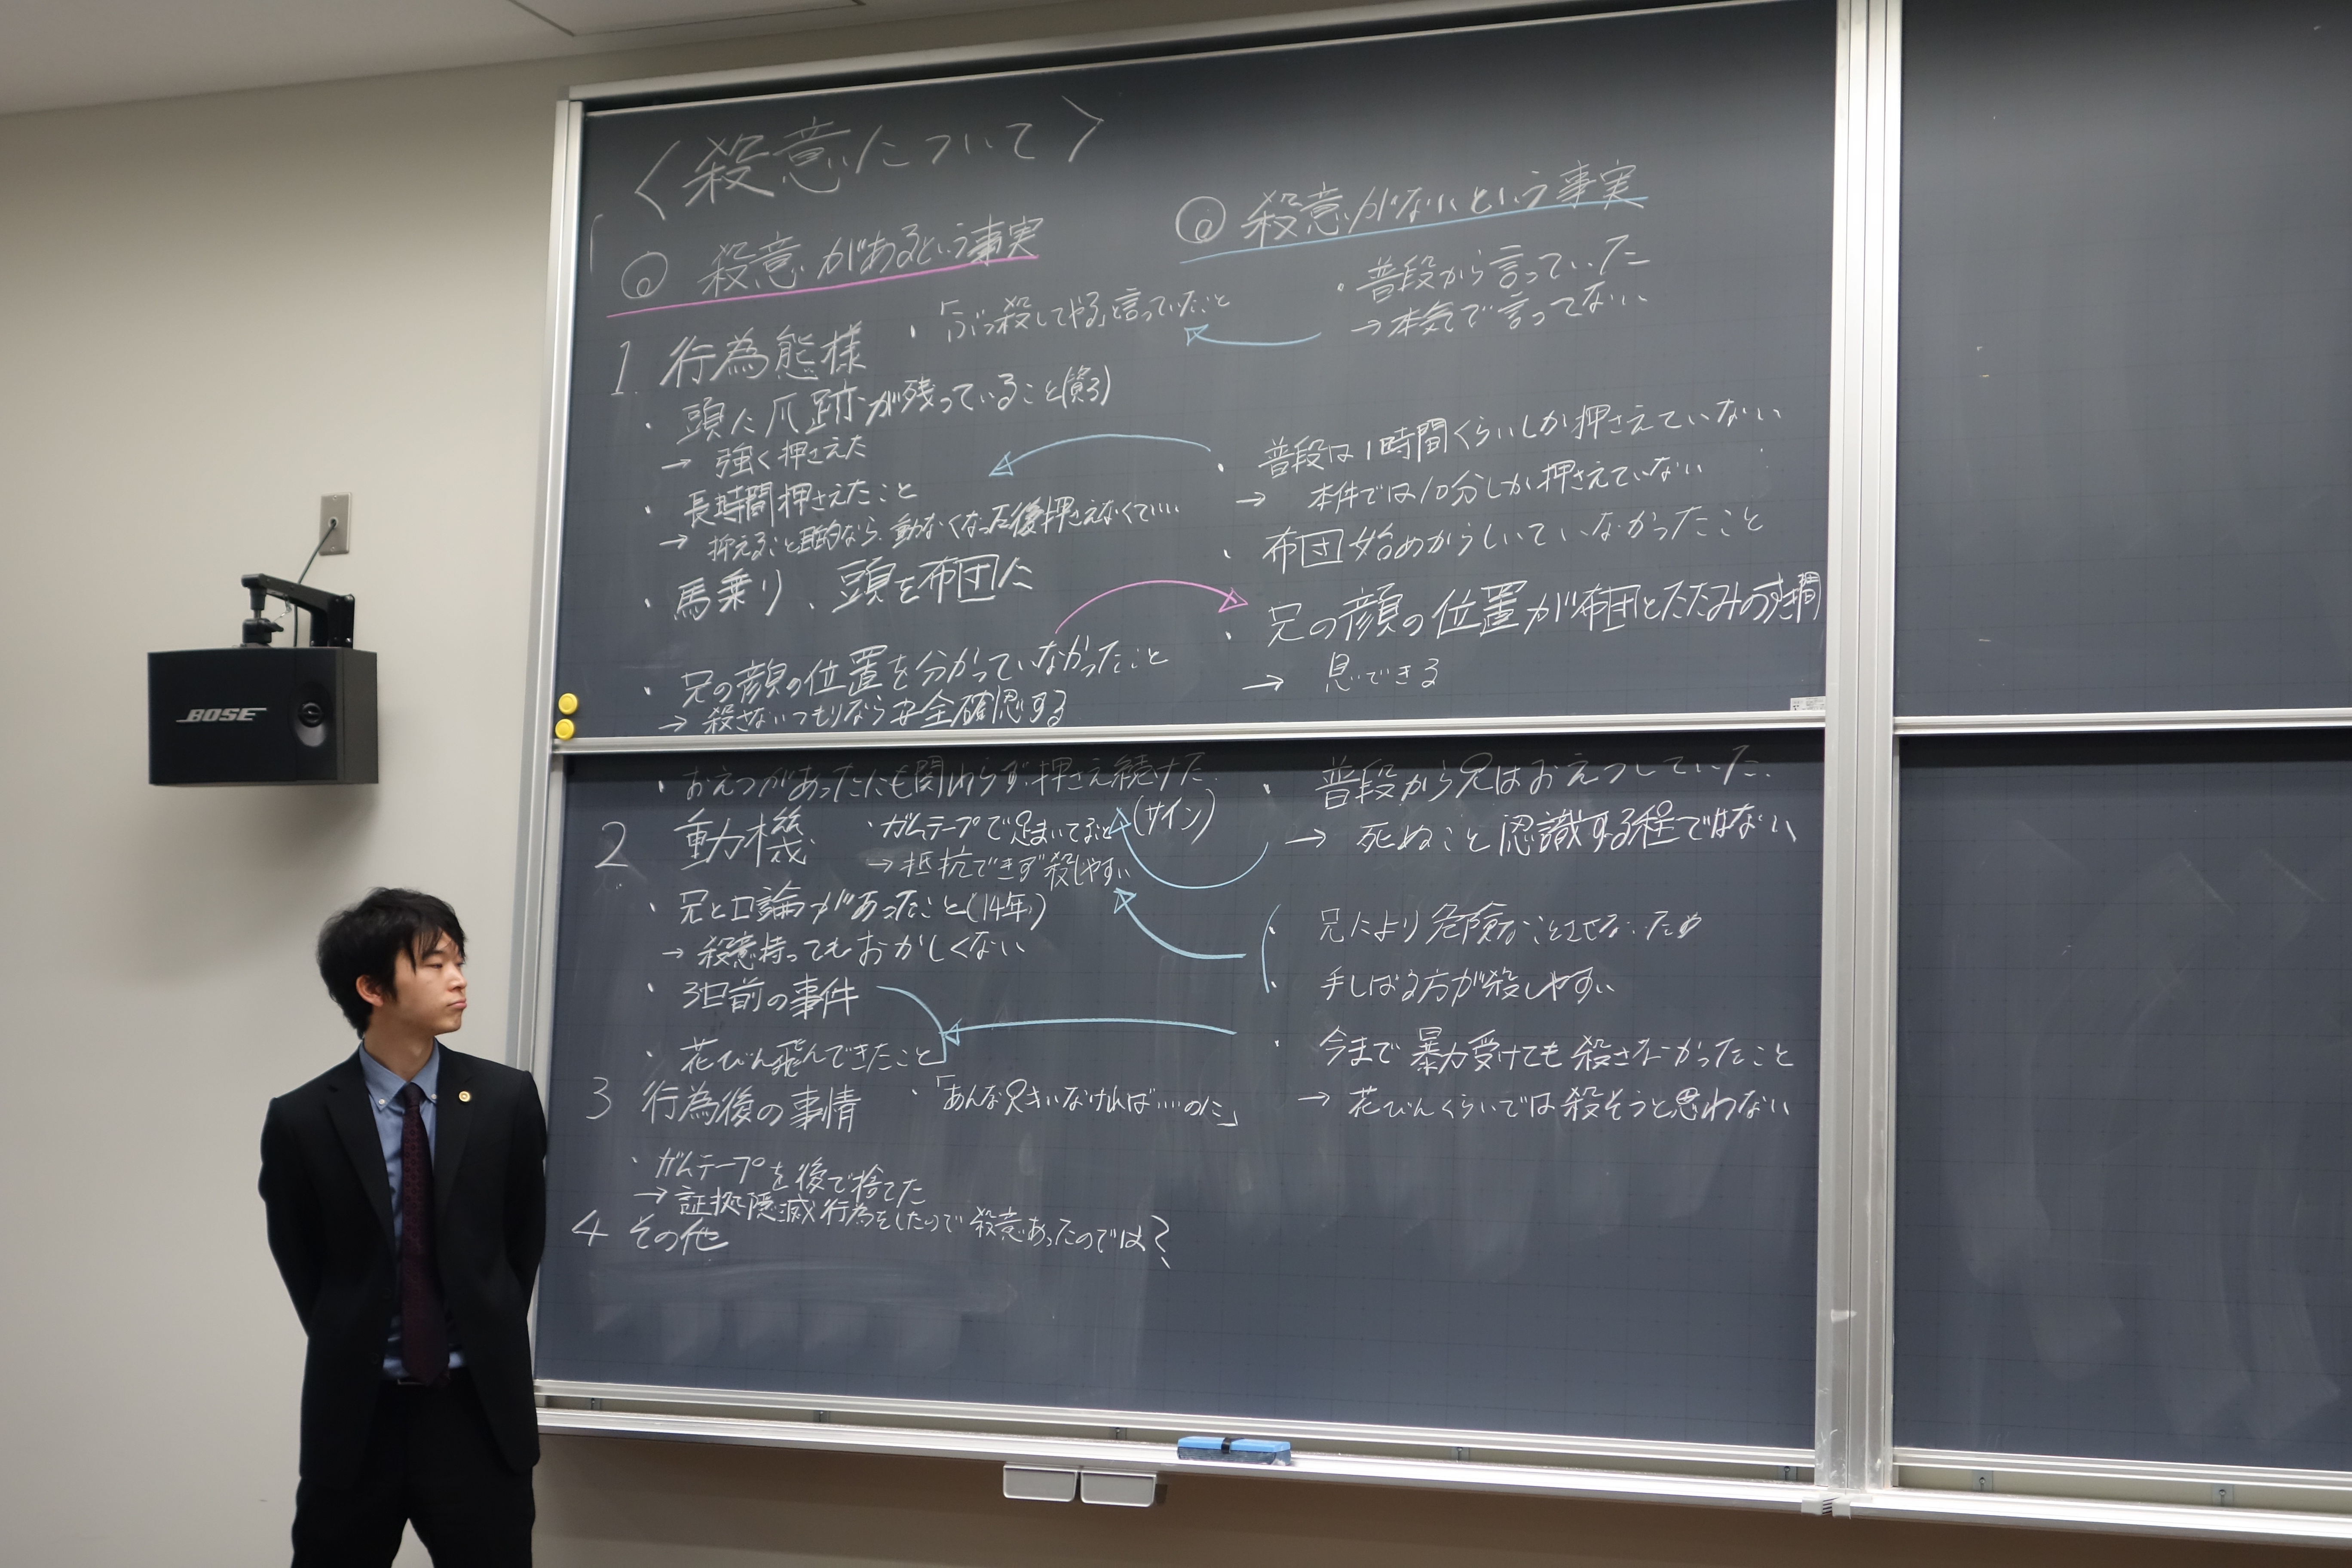 〈殺意について〉
◎ 殺意があるという事実
1 行為態様
・「ぶっ殺してやる」と言っていたこと
・頭に爪跡が残っていること(資3)
→ 強く押さえた
・長時間押さえたこと
→ 抑えること目的なら、動なくなった後押さえなくていい
・馬乗り、頭を布団に
・兄の顔の位置を分かっていなかったこと
→ 殺さないつもりなら安全確認する
・おえつがあったにも関わらず押さえ続けた
(サイン)
2 動機
・ガムテープで足まいてること
→ 抵抗できず殺しやすい
・兄と口論があったこと(14年)
→ 殺意持ってもおかしくない
・3日前の事件
・花びん飛んできたこと
3 行為後の事情
・「あんな兄きいなければ……のに」
・ガムテープを後で捨てた
→ 証拠隠滅行為をしたので殺意あったのでは?
4 その他
◎ 殺意がないという事実
・普段から言っていた
→ 本気で言ってない
・普段は1時間くらいしか押さえていない
→ 本件では10分しか押さえていない
・布団始めからしいていなかったこと
・兄の顔の位置が布団とたたみのすき間
→ 息できる
・普段から兄はおえつしていた
→ 死ぬこと認識する程ではない
・兄により危険なことさせないため
・手しばる方が殺しやすい
・今まで暴力受けても殺さなかったこと
→ 花びんくらいでは殺そうと思わない
BOSE